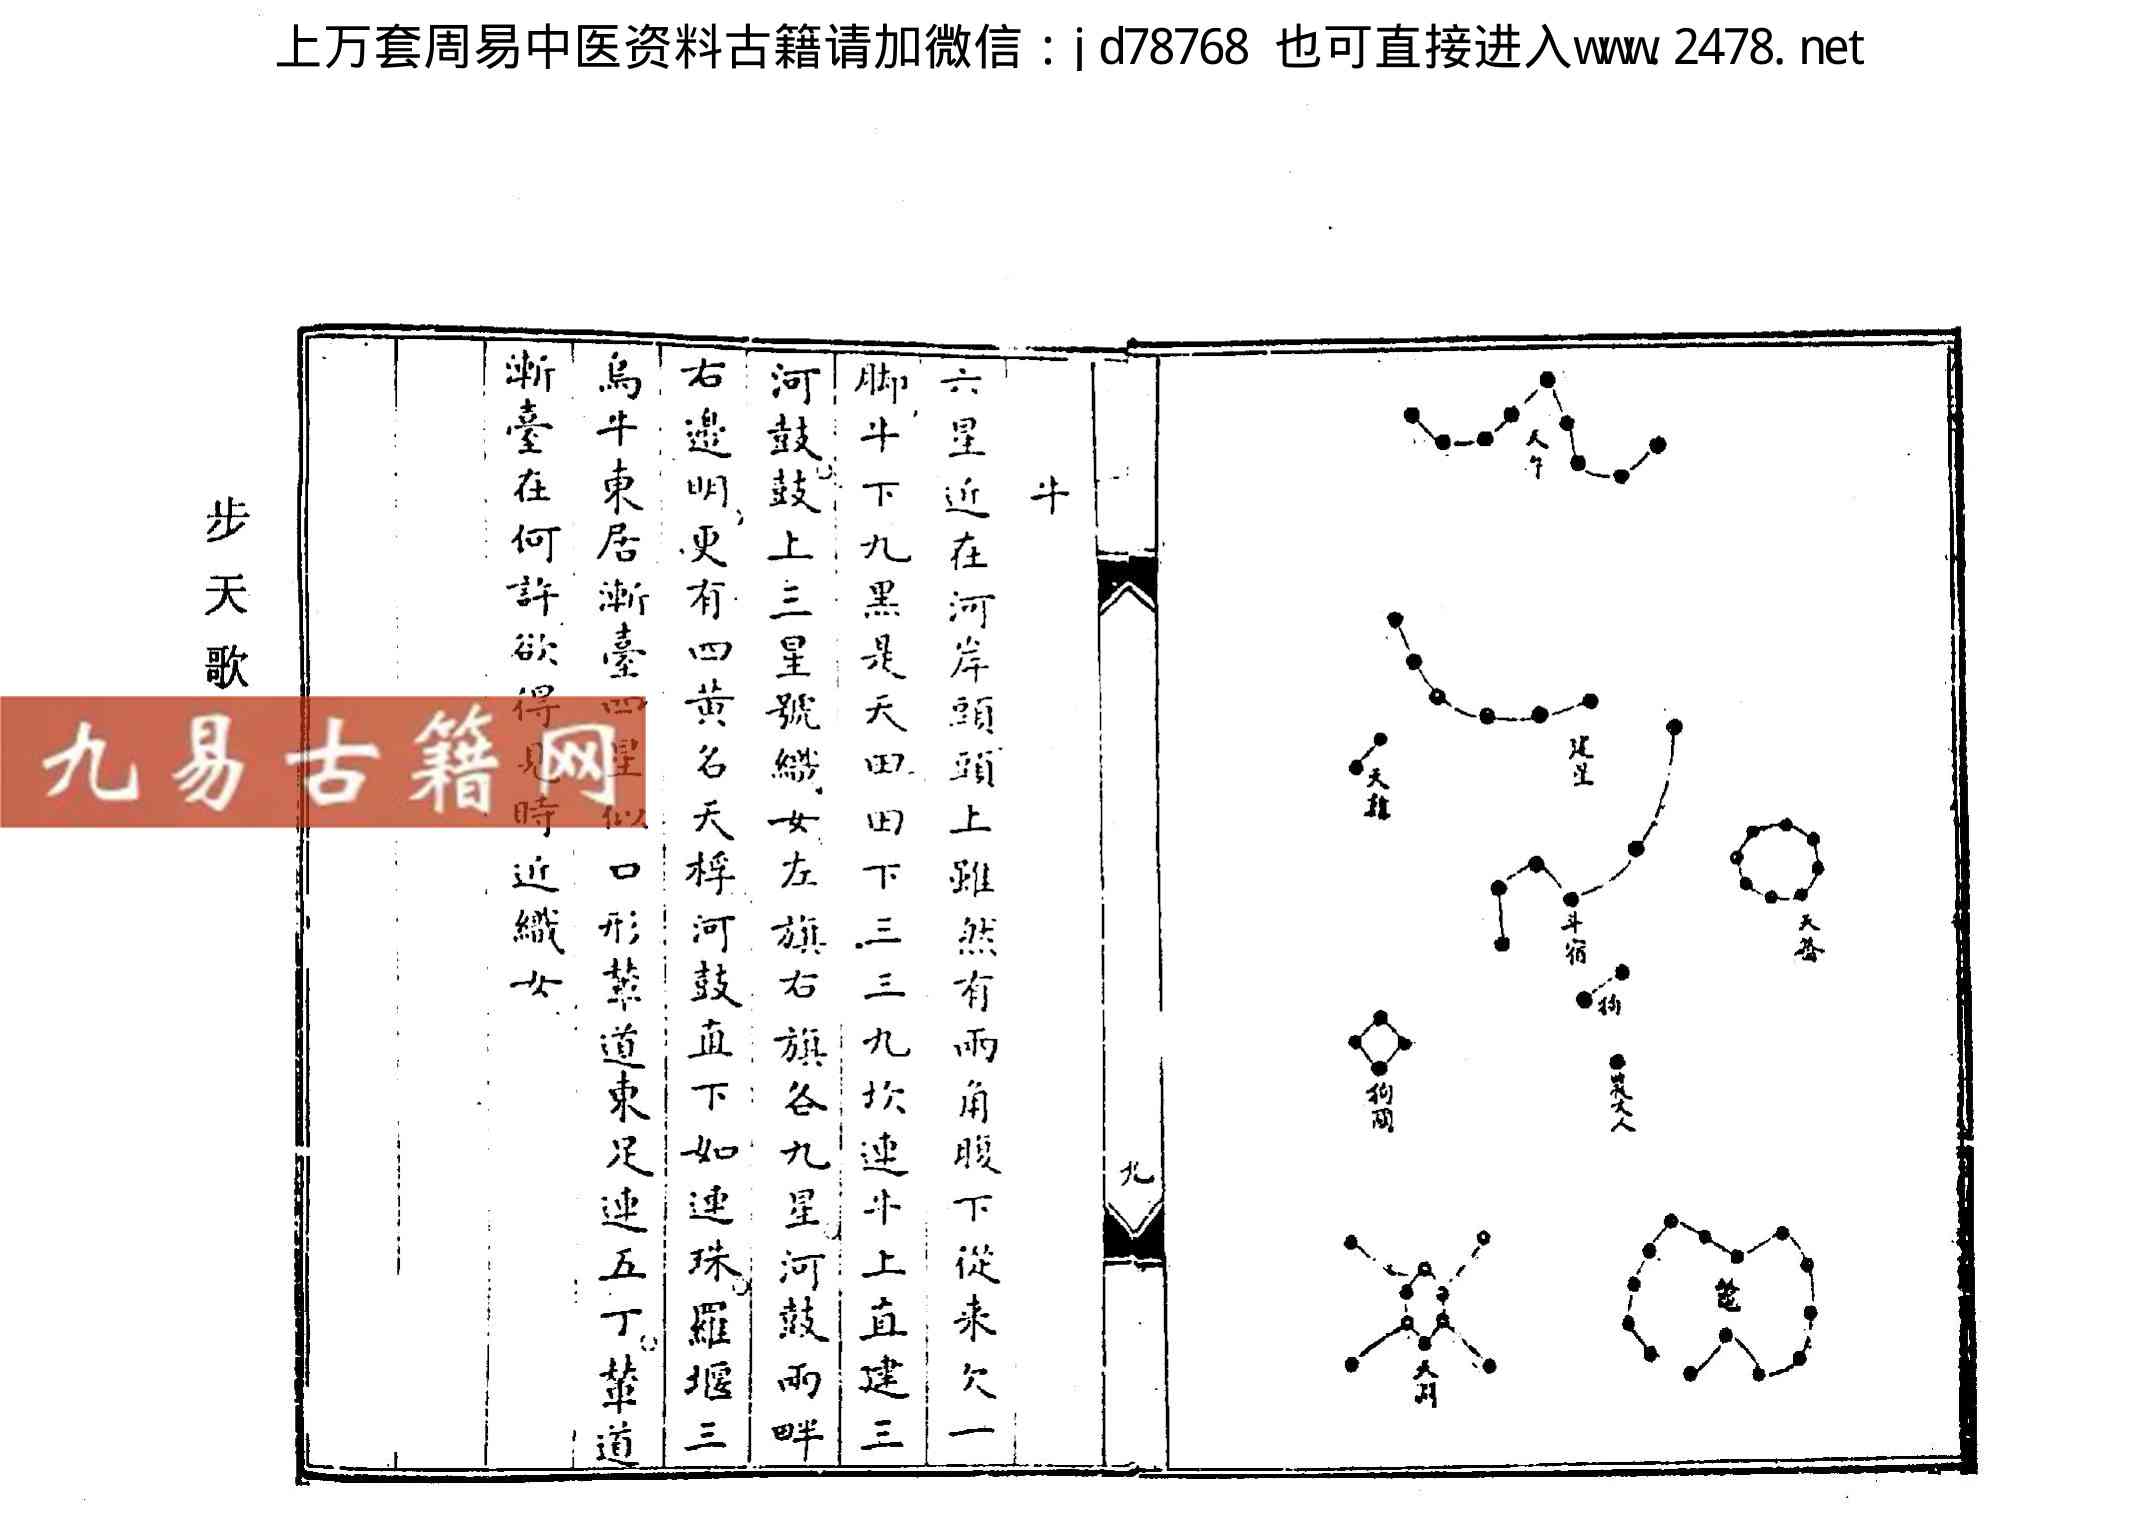 上万套周易中医资料古籍请加微信：jd78768 也可直接进入www.2478.net
天弁
建星
天雞
斗宿
天籥
狗
狗國
農丈人
天淵
鼈
九
牛
六星近在河岸頭頭上雖然有兩角腹下從来欠一
脚牛下九黑是天田田下三三九坎連牛上直建三
河鼓鼓上三星號織女左旗右旗各九星河鼓兩畔
右邊明更有四黄名天桴河鼓直下如連珠羅堰三
烏牛東居漸臺四星似口形輦道東足連五丁輦道
漸臺在何許欲得見時近織女
步天歌
九易古籍网